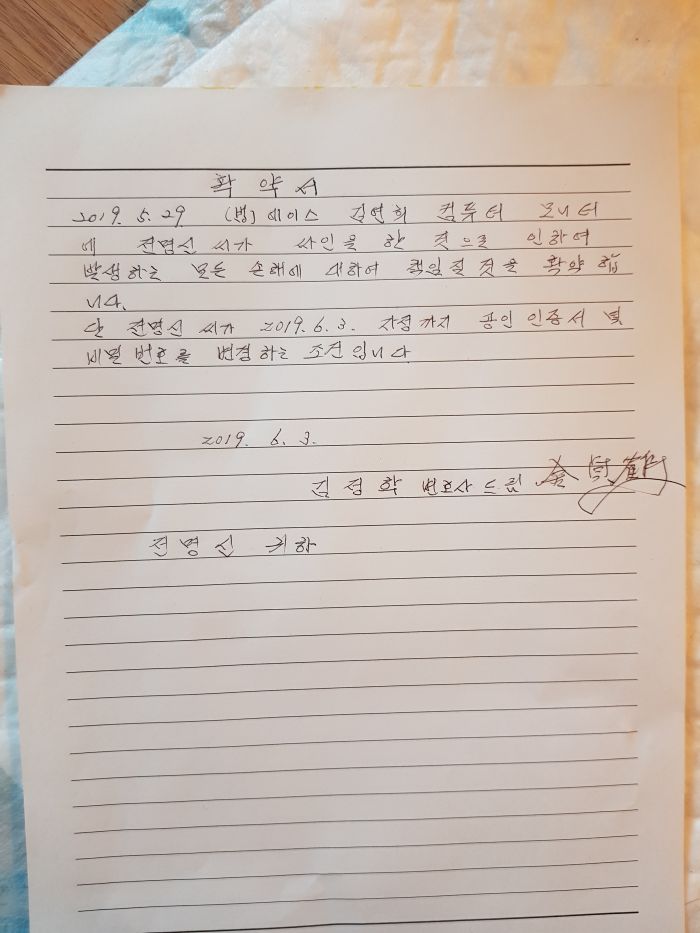 확약서
2019. 5. 29 (법) 에이스 김연희 컴퓨터 모니터
에 전명신 씨가 싸인을 한 것으로 인하여
발생하는 모든 손해에 대하여 책임질 것을 확약 합
니다.
단 전명신 씨가 2019. 6. 3. 자정까지 공인 인증서 및
비밀 번호를 변경하는 조건입니다
2019. 6. 3.
김정학 변호사 드림 金
전명신 귀하